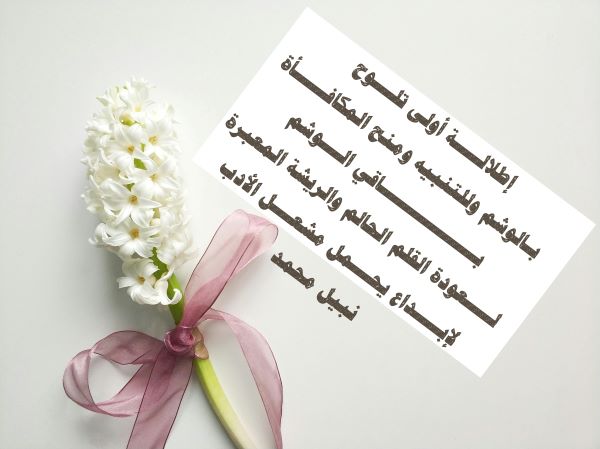 إطلالة أولى تلوح
بالوشم وللتنبيه ومنح المكافأة
باقي الوشم
لعودة القلم الحالم والريشة المعبرة
لإبداع يحمل مشعل الأدب
نبيل محمد